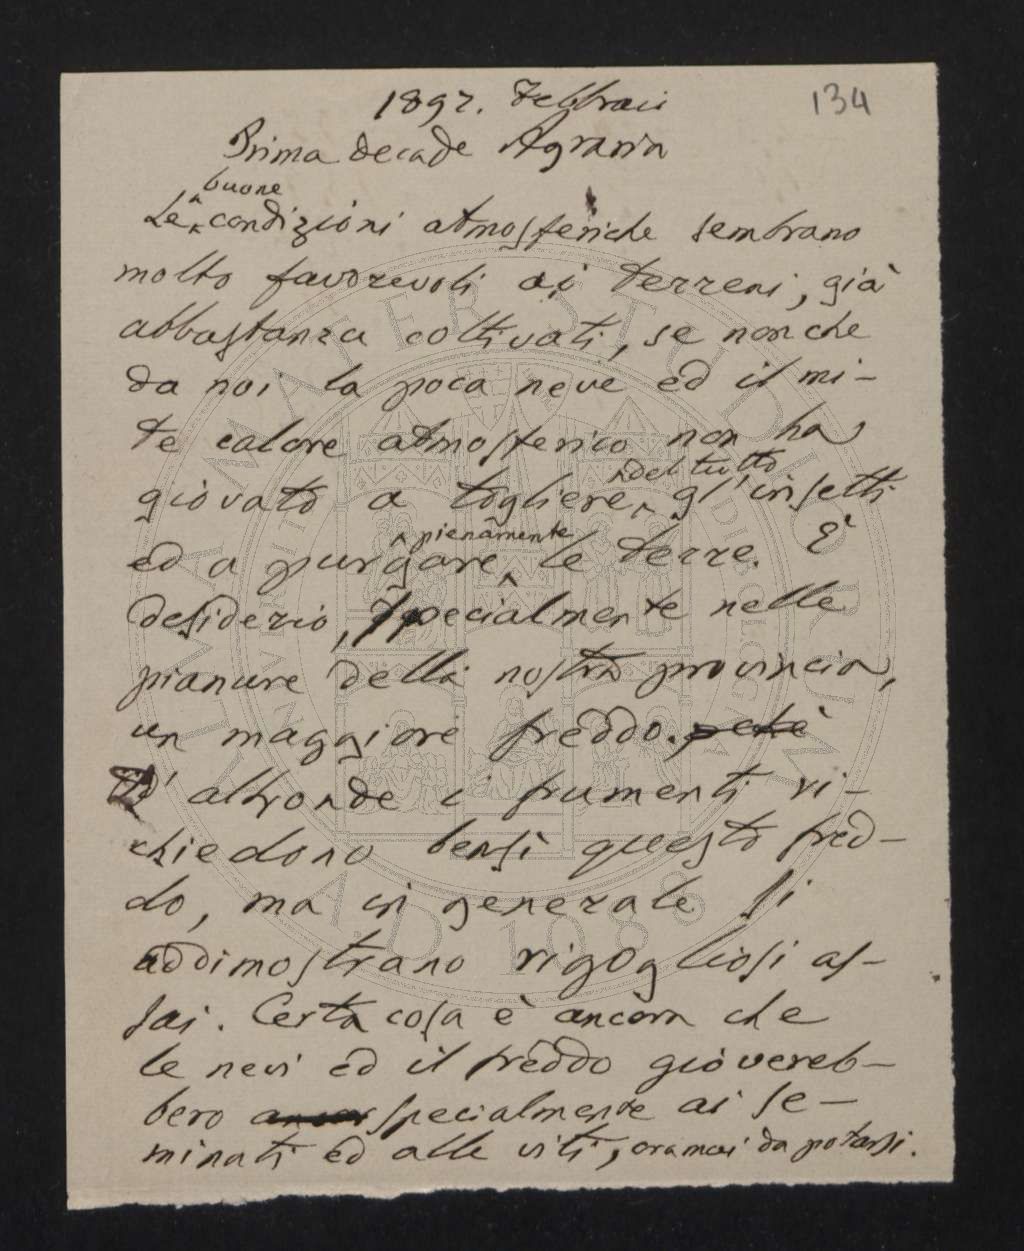 134
1897. Febbraio
Prima decade Agraria
buone
Le condizioni atmosferiche sembrano
molto favorevoli ai terreni, già
abbastanza coltivati, se non che
da noi la poca neve ed il mi-
te calore atmosferico non ha
del tutto
giovato a togliere gl'insetti
pienamente
ed a purgare le terre. È
desiderio, specialmente nelle
pianure della nostra provincia,
un maggiore freddo.
D'altronde i frumenti ri-
chiedono bensì questo fred-
do, ma in generale si
addimostrano rigogliosi as-
sai. Certa cosa è ancora che
le nevi ed il freddo giovereb-
bero specialmente ai se-
minati ed alle viti, oramai da potarsi.
ALMA MATER STUDIORUM
A.D. 1088